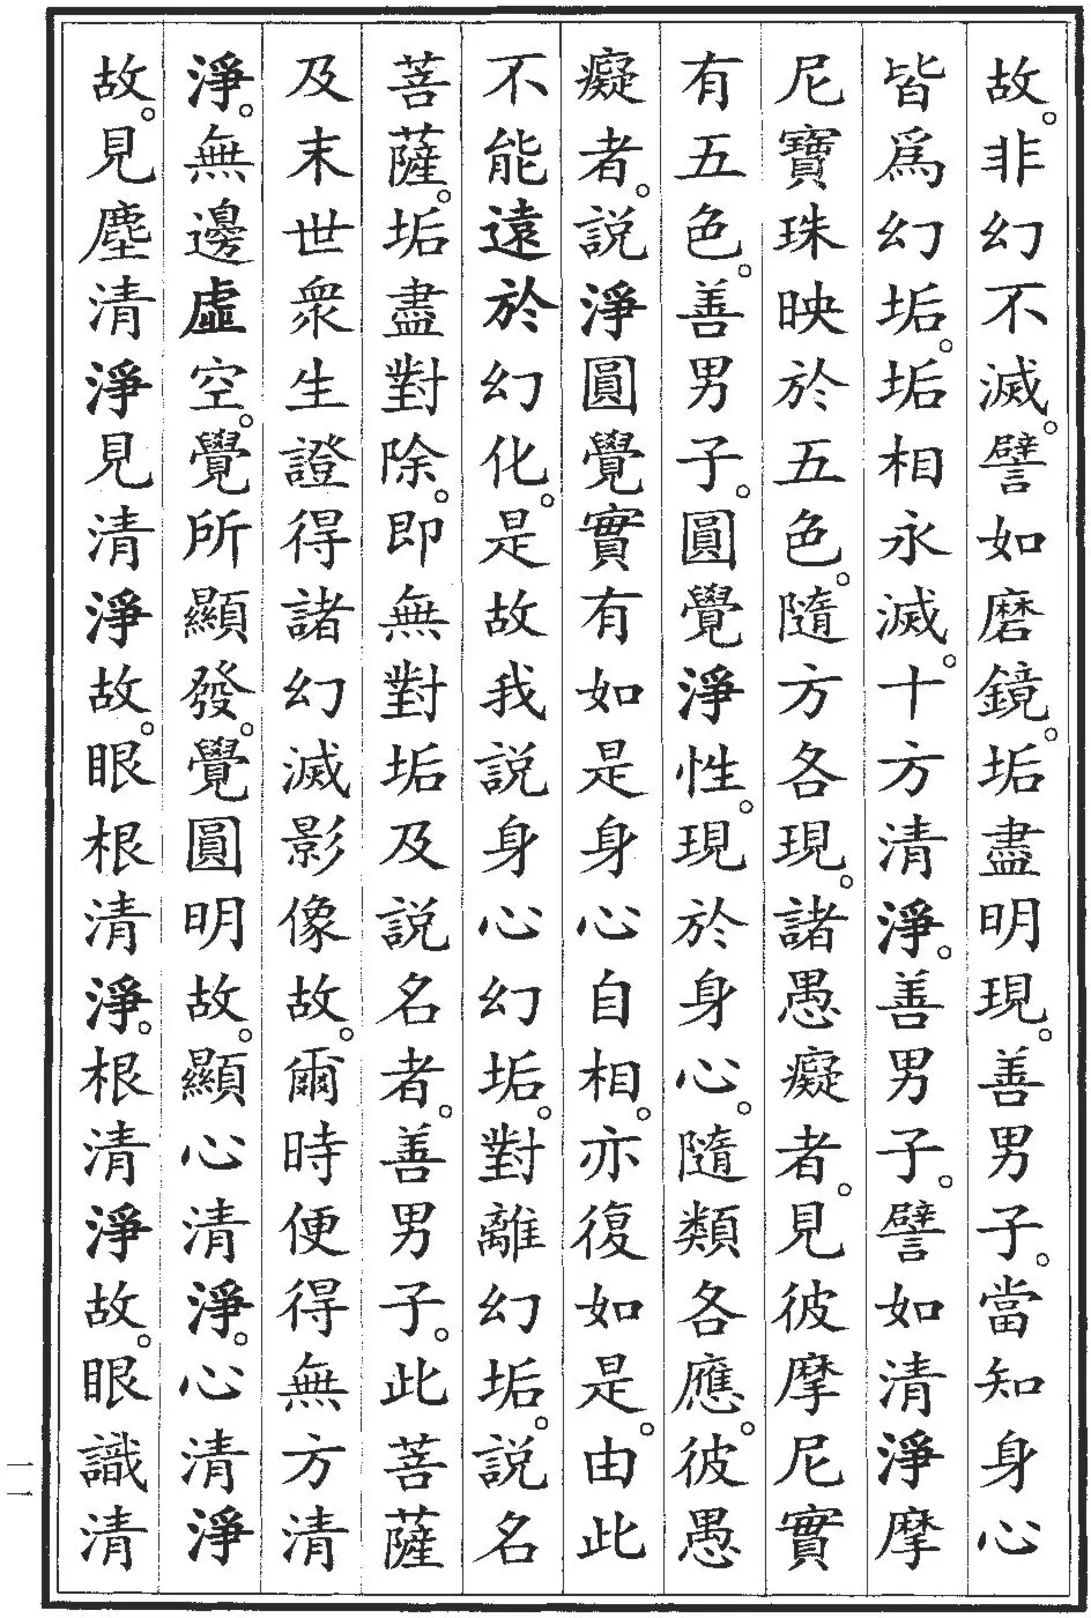 故。非幻不滅。譬如磨鏡。垢盡明現。善男子。當知身心
皆爲幻垢。垢相永滅。十方清淨。善男子。譬如清淨摩
尼寶珠映於五色。隨方各現。諸愚癡者。見彼摩尼實
有五色。善男子。圓覺淨性。現於身心。隨類各應。彼愚
癡者。說淨圓覺實有如是身心自相。亦復如是。由此
不能遠於幻化。是故我說身心幻垢。對離幻垢。說名
菩薩。垢盡對除。即無對垢及說名者。善男子。此菩薩
及末世衆生證得諸幻滅影像故。爾時便得無方清
淨。無邊虛空。覺所顯發。覺圓明故。顯心清淨。心清淨
故。見塵清淨見清淨故。眼根清淨。根清淨故。眼識清
一一